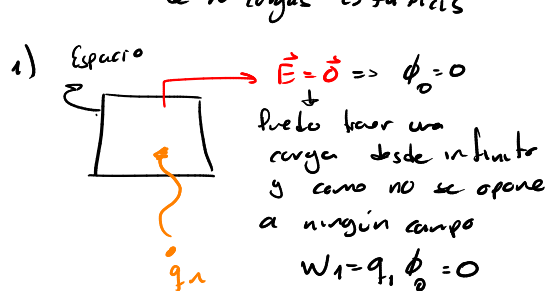 de no cargas estáticas
1) Espacio
E⃗ = 0⃗ => ϕ₀ = 0
Puedo traer una
carga desde infinito
y como no se opone
a ningún campo
q₁
W₁ = q₁ ϕ₀ = 0